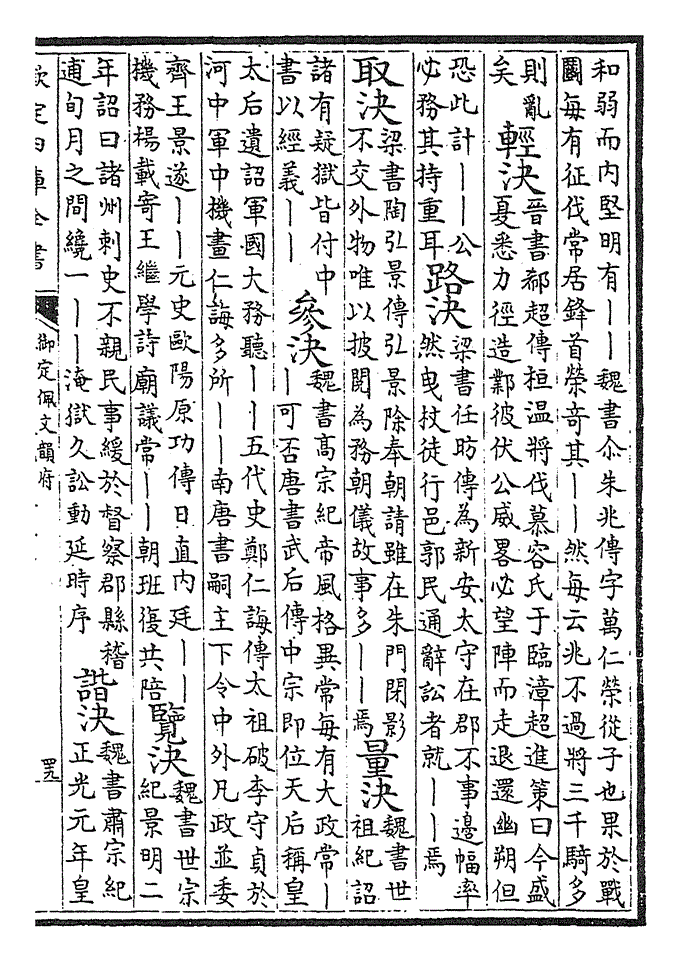 和弱而内堅明有——魏書尒朱兆傳字萬仁榮從子也果於戰
國每有征伐常居鋒首榮竒其——然每云兆不過將三千騎多
則亂
矣
輕決
晉書郗超傳桓温將伐慕容氏于臨漳超進策曰今盛
夏悉力徑造鄴彼伏公威畧必望陣而走退還幽朔但
恐此計——公
必務其持重耳
路決
梁書任昉傳為新安太守在郡不事邊幅率
然曳杖徒行邑郭民通辭訟者就——焉
取決
梁書陶弘景傳弘景除奉朝請雖在朱門閉影
不交外物唯以披閲為務朝儀故事多——焉
量決
魏書世
祖紀詔
諸有疑獄皆付中
書以經義——
參決
魏書髙宗紀帝風格異常每有大政常—
—可否唐書武后傳中宗即位天后稱皇
太后遺詔軍國大務聽——五代史鄭仁誨傳太祖破李守貞於
河中軍中機畫仁誨多所——南唐書嗣主下令中外凡政並委
齊王景遂——元史歐陽原功傳日直内廷——
機務楊載寄王繼學詩廟議常——朝班復共陪
覽決
魏書世宗
紀景明二
年詔曰諸州刺史不親民事緩於督察郡縣稽
逋旬月之間纔一——淹獄久訟動延時序
諧決
魏書肅宗紀
正光元年皇
欽定四庫全書
御定佩文韻府